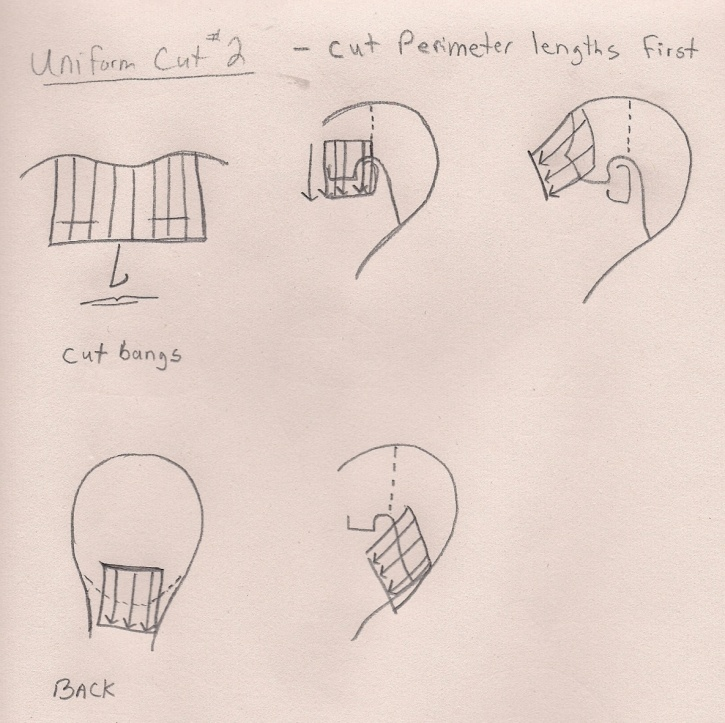 Uniform Cut #2 - cut Perimeter lengths First
cut bangs
BACK